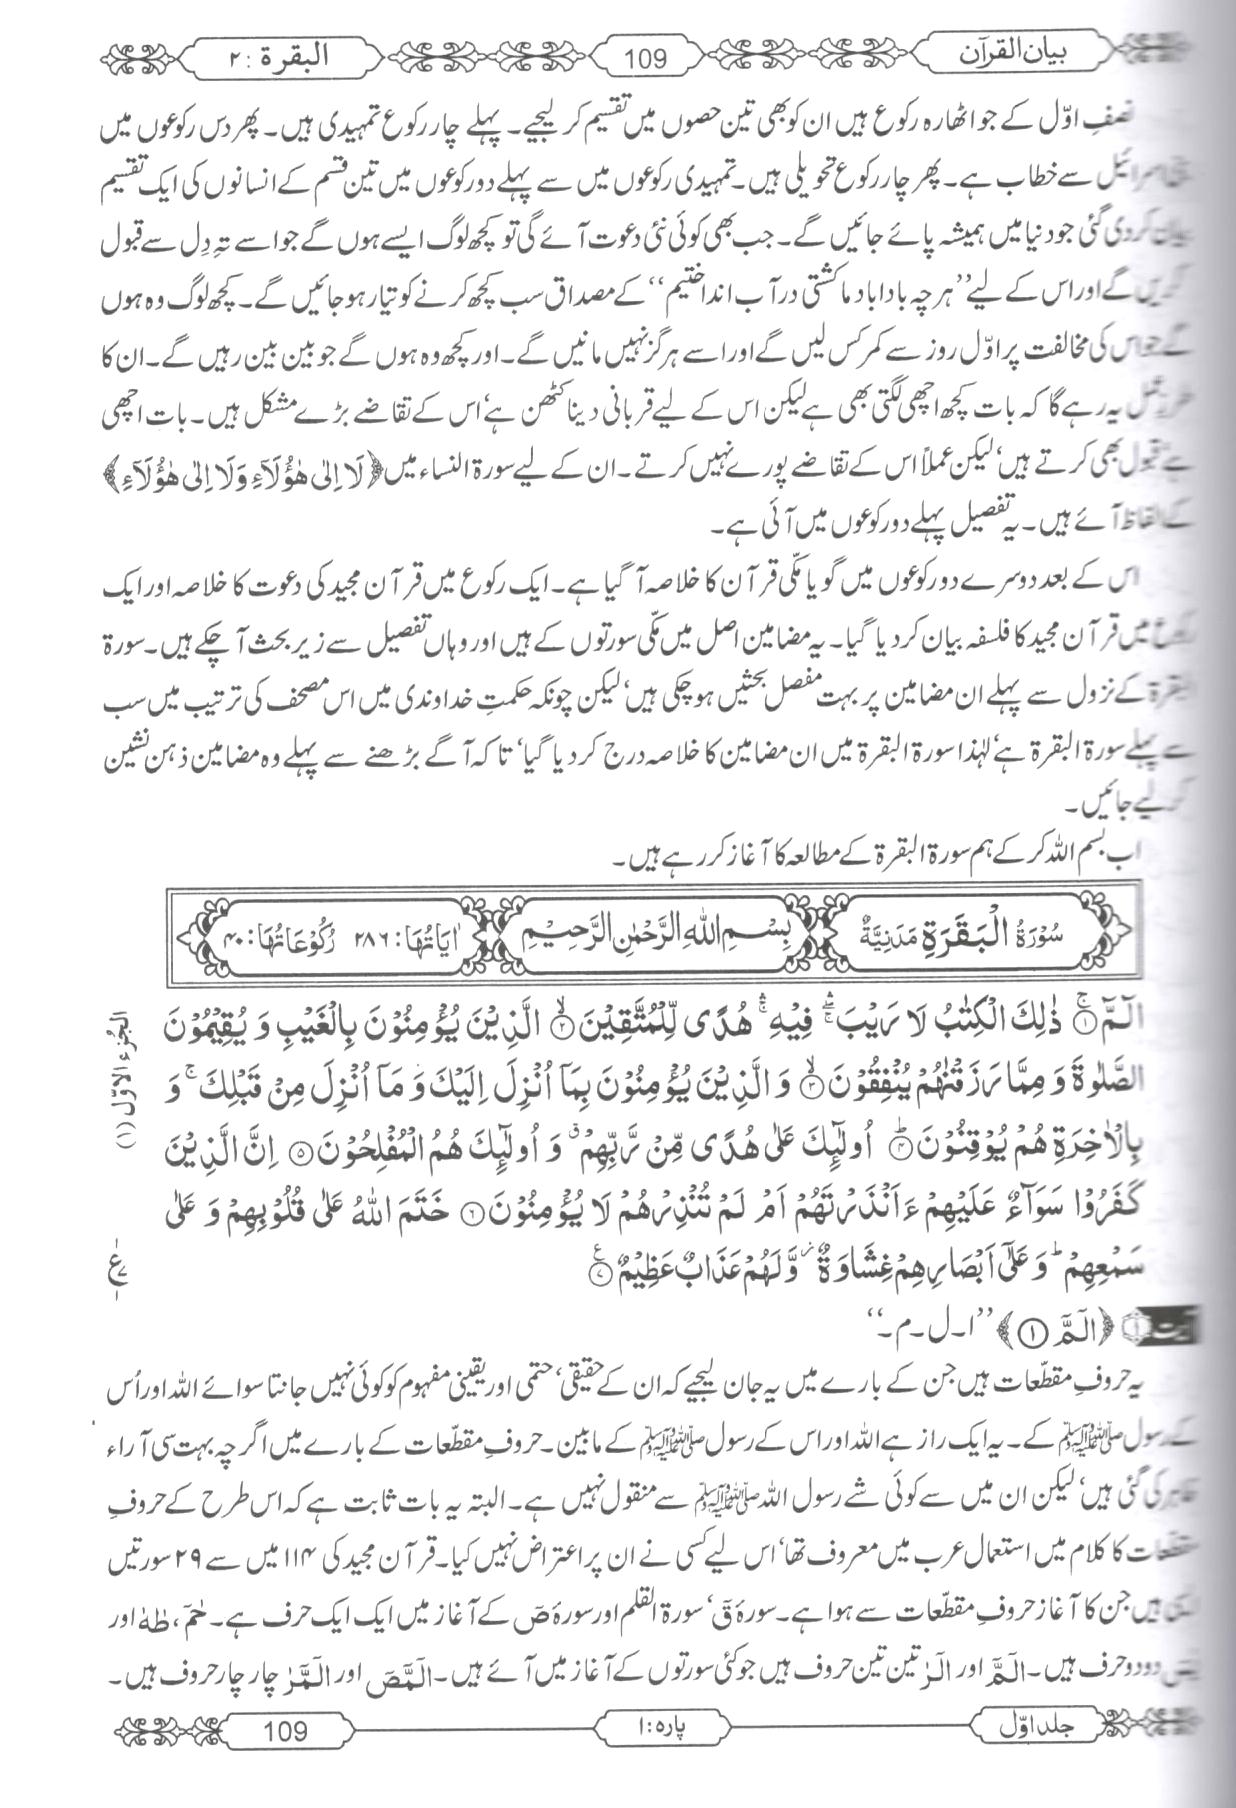 بیان القرآن
109
البقرة : ۲
نصفِ اوّل کے جو اٹھارہ رکوع ہیں ان کو بھی تین حصوں میں تقسیم کر لیجیے۔ پہلے چار رکوع تمہیدی ہیں۔ پھر دس رکوعوں میں
بنی اسرائیل سے خطاب ہے۔ پھر چار رکوع تحویلی ہیں۔ تمہیدی رکوعوں میں سے پہلے دو رکوعوں میں تین قسم کے انسانوں کی ایک تقسیم
بیان کر دی گئی جو دنیا میں ہمیشہ پائے جائیں گے۔ جب بھی کوئی نئی دعوت آئے گی تو کچھ لوگ ایسے ہوں گے جو اسے تہِ دِل سے قبول
کریں گے اور اس کے لیے ’’ہرچہ بادا باد ما کشتی در آب انداختیم‘‘ کے مصداق سب کچھ کرنے کو تیار ہو جائیں گے۔ کچھ لوگ وہ ہوں
گے جو اس کی مخالفت پر اوّل روز سے کمر کس لیں گے اور اسے ہرگز نہیں مانیں گے۔ اور کچھ وہ ہوں گے جو بین بین رہیں گے۔ ان کا
طرزِ عمل یہ رہے گا کہ بات کچھ اچھی لگتی بھی ہے لیکن اس کے لیے قربانی دینا کٹھن ہے‘ اس کے تقاضے بڑے مشکل ہیں۔ بات اچھی
ہے‘ قبول بھی کرتے ہیں‘ لیکن عملاً اس کے تقاضے پورے نہیں کرتے۔ ان کے لیے سورۃ النساء میں ﴿لَا اِلٰی هٰؤُلَآءِ وَلَا اِلٰی هٰؤُلَآءِ﴾
کے الفاظ آئے ہیں۔ یہ تفصیل پہلے دو رکوعوں میں آئی ہے۔
اس کے بعد دوسرے دو رکوعوں میں گویا مکّی قرآن کا خلاصہ آ گیا ہے۔ ایک رکوع میں قرآن مجید کی دعوت کا خلاصہ اور ایک
رکوع میں قرآن مجید کا فلسفہ بیان کر دیا گیا۔ یہ مضامین اصل میں مکّی سورتوں کے ہیں اور وہاں تفصیل سے زیر بحث آ چکے ہیں۔ سورۃ
البقرۃ کے نزول سے پہلے ان مضامین پر بہت مفصل بحثیں ہو چکی ہیں‘ لیکن چونکہ حکمتِ خداوندی میں اس مصحف کی ترتیب میں سب
سے پہلے سورۃ البقرۃ ہے‘ لہٰذا سورۃ البقرۃ میں ان مضامین کا خلاصہ درج کر دیا گیا‘ تاکہ آگے بڑھنے سے پہلے وہ مضامین ذہن نشین
کر لیے جائیں۔
اب بسم اللہ کر کے ہم سورۃ البقرۃ کے مطالعہ کا آغاز کر رہے ہیں۔
سُوْرَةُ الْبَقَرَةِ مَدَنِيَّةٌ
بِسْمِ اللّٰهِ الرَّحْمٰنِ الرَّحِيْمِ
اٰيَاتُهَا: ۲۸۶ رُكُوْعَاتُهَا: ۴۰
الٓمّٓ ۚ﴿۱﴾ ذٰلِكَ الْكِتٰبُ لَا رَيْبَ ۛۖ فِيْهِ ۛۚ هُدًى لِّلْمُتَّقِيْنَ ۙ﴿۲﴾ الَّذِيْنَ يُؤْمِنُوْنَ بِالْغَيْبِ وَ يُقِيْمُوْنَ
الصَّلٰوةَ وَ مِمَّا رَزَقْنٰهُمْ يُنْفِقُوْنَ ۙ﴿۳﴾ وَ الَّذِيْنَ يُؤْمِنُوْنَ بِمَاۤ اُنْزِلَ اِلَيْكَ وَ مَاۤ اُنْزِلَ مِنْ قَبْلِكَ ۚ وَ
بِالْاٰخِرَةِ هُمْ يُوْقِنُوْنَ ؕ﴿۴﴾ اُولٰٓىِٕكَ عَلٰى هُدًى مِّنْ رَّبِّهِمْ ۗ وَ اُولٰٓىِٕكَ هُمُ الْمُفْلِحُوْنَ ﴿۵﴾ اِنَّ الَّذِيْنَ
كَفَرُوْا سَوَآءٌ عَلَيْهِمْ ءَاَنْذَرْتَهُمْ اَمْ لَمْ تُنْذِرْهُمْ لَا يُؤْمِنُوْنَ ﴿۶﴾ خَتَمَ اللّٰهُ عَلٰى قُلُوْبِهِمْ وَ عَلٰى
سَمْعِهِمْ ؕ وَ عَلٰۤى اَبْصَارِهِمْ غِشَاوَةٌ ؗ وَّ لَهُمْ عَذَابٌ عَظِيْمٌ ﴿۷﴾
الجُزء الاوّل (۱)
ع
آیت ۱ ﴿الٓمّٓ ﴿۱﴾﴾ ’’ا۔ ل۔ م۔‘‘
یہ حروفِ مقطّعات ہیں جن کے بارے میں یہ جان لیجیے کہ ان کے حقیقی‘ حتمی اور یقینی مفہوم کو کوئی نہیں جانتا سوائے اللہ اور اُس
کے رسول ﷺ کے۔ یہ ایک راز ہے اللہ اور اس کے رسول ﷺ کے مابین۔ حروفِ مقطّعات کے بارے میں اگرچہ بہت سی آراء
ظاہر کی گئی ہیں‘ لیکن ان میں سے کوئی شے رسول اللہ ﷺ سے منقول نہیں ہے۔ البتہ یہ بات ثابت ہے کہ اس طرح کے حروفِ
مقطّعات کا کلام میں استعمال عرب میں معروف تھا‘ اس لیے کسی نے ان پر اعتراض نہیں کیا۔ قرآن مجید کی ۱۱۴ میں سے ۲۹ سورتیں
ایسی ہیں جن کا آغاز حروفِ مقطّعات سے ہوا ہے۔ سورۂ قٓ‘ سورۃ القلم اور سورۂ صٓ کے آغاز میں ایک ایک حرف ہے۔ حٰمٓ، طٰهٰ اور
یٰسٓ دو دو حرف ہیں۔ الٓمّٓ اور الٓرٰ تین تین حروف ہیں جو کئی سورتوں کے آغاز میں آئے ہیں۔ الٓمّٓصٓ اور الٓمّٓرٰ چار چار حروف ہیں۔
جلد اوّل
پارہ: ۱
109